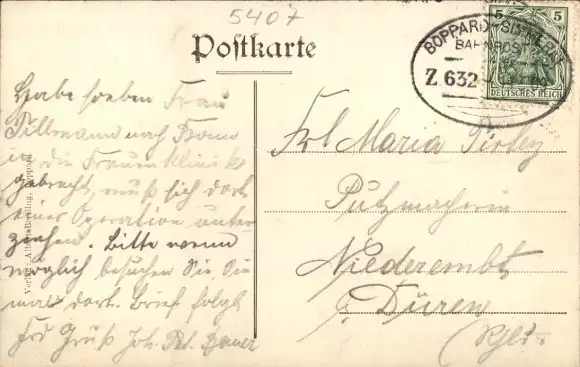 5407
Postkarte
BOPPARD-SIMMERN
BAHNPOST
Z 632
5 5
DEUTSCHES REICH
Habe soeben Frau
Tillmann nach Bonn
in die Frauenklinik
gebracht, muß sich dort
einer Operation unter
ziehen. Bitte wenn
möglich besuchen Sie Sie
mal dort. Brief folgt
Frd Gruß Joh. Pet.
Frl Maria
Putzmacherin
Niederembt
b. Düren
Rhld.